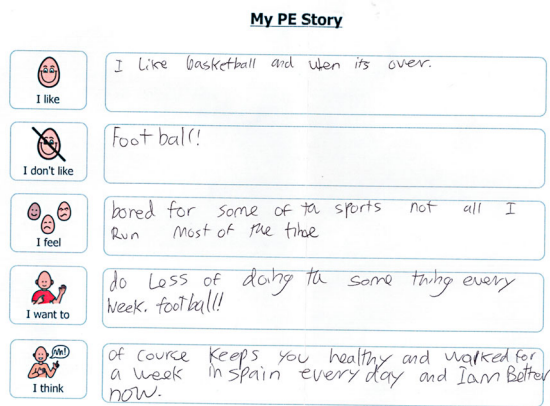 My PE Story
I like
I Like basketball and wen its over.
I don't like
Football!
I feel
bored for some of ta sports not all I
Run most of the time
I want to
do Less of doing ta some thing every
week. football!!
I think
of course keeps you healthy and walked for
a week in spain every day and Iam Better
now.